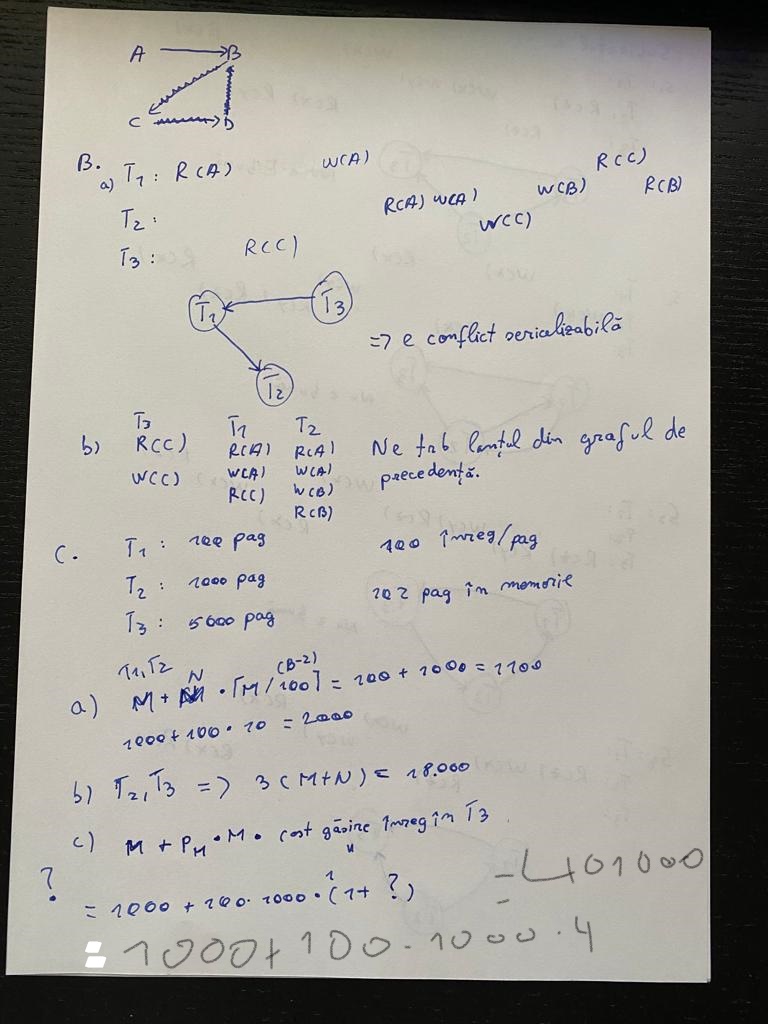 A B
C D
B.
a) T1: R(A) W(A) R(C)
R(A) W(A) W(B) R(B)
T2: W(C)
T3: R(C)
T1 T3
=> e conflict serializabilă
T2
T3 T1 T2
b) R(C) R(A) R(A) Ne trb lanțul din graful de
W(C) W(A) W(A) precedență.
R(C) W(B)
R(B)
C. T1: 100 pag 100 înreg/pag
T2: 1000 pag 102 pag în memorie
T3: 5000 pag
T1,T2 N (B-2)
a) M + · ⌈M/100⌉ = 100 + 1000 = 1100
1000 + 100 · 10 = 2000
b) T2, T3 => 3(M+N) = 18.000
c) M + PM · M · cost găsire înreg în T3
?
= 1000 + 100 · 1000 · (1 + ?) = 401000
= 1000 + 100 · 1000 · 4